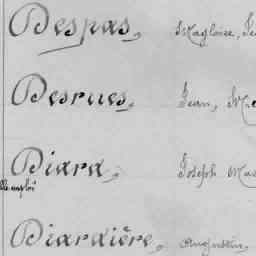 Despas, Magloire, Je
Desrues, Jean, M.
Diard, Joseph Ma
Diardière, Augustin,